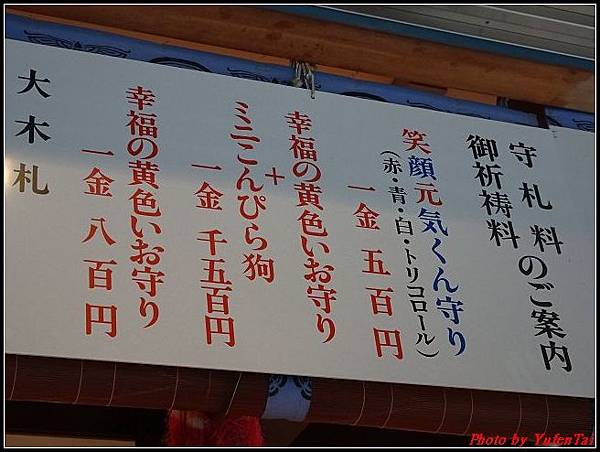 守札料のご案内
御祈祷料
笑顔元気くん守り
(赤・青・白・トリコロール)
一金 五百円
幸福の黄色いお守り
＋
ミニこんぴら狗
一金 千五百円
幸福の黄色いお守り
一金 八百円
大木札
Photo by YufenTai